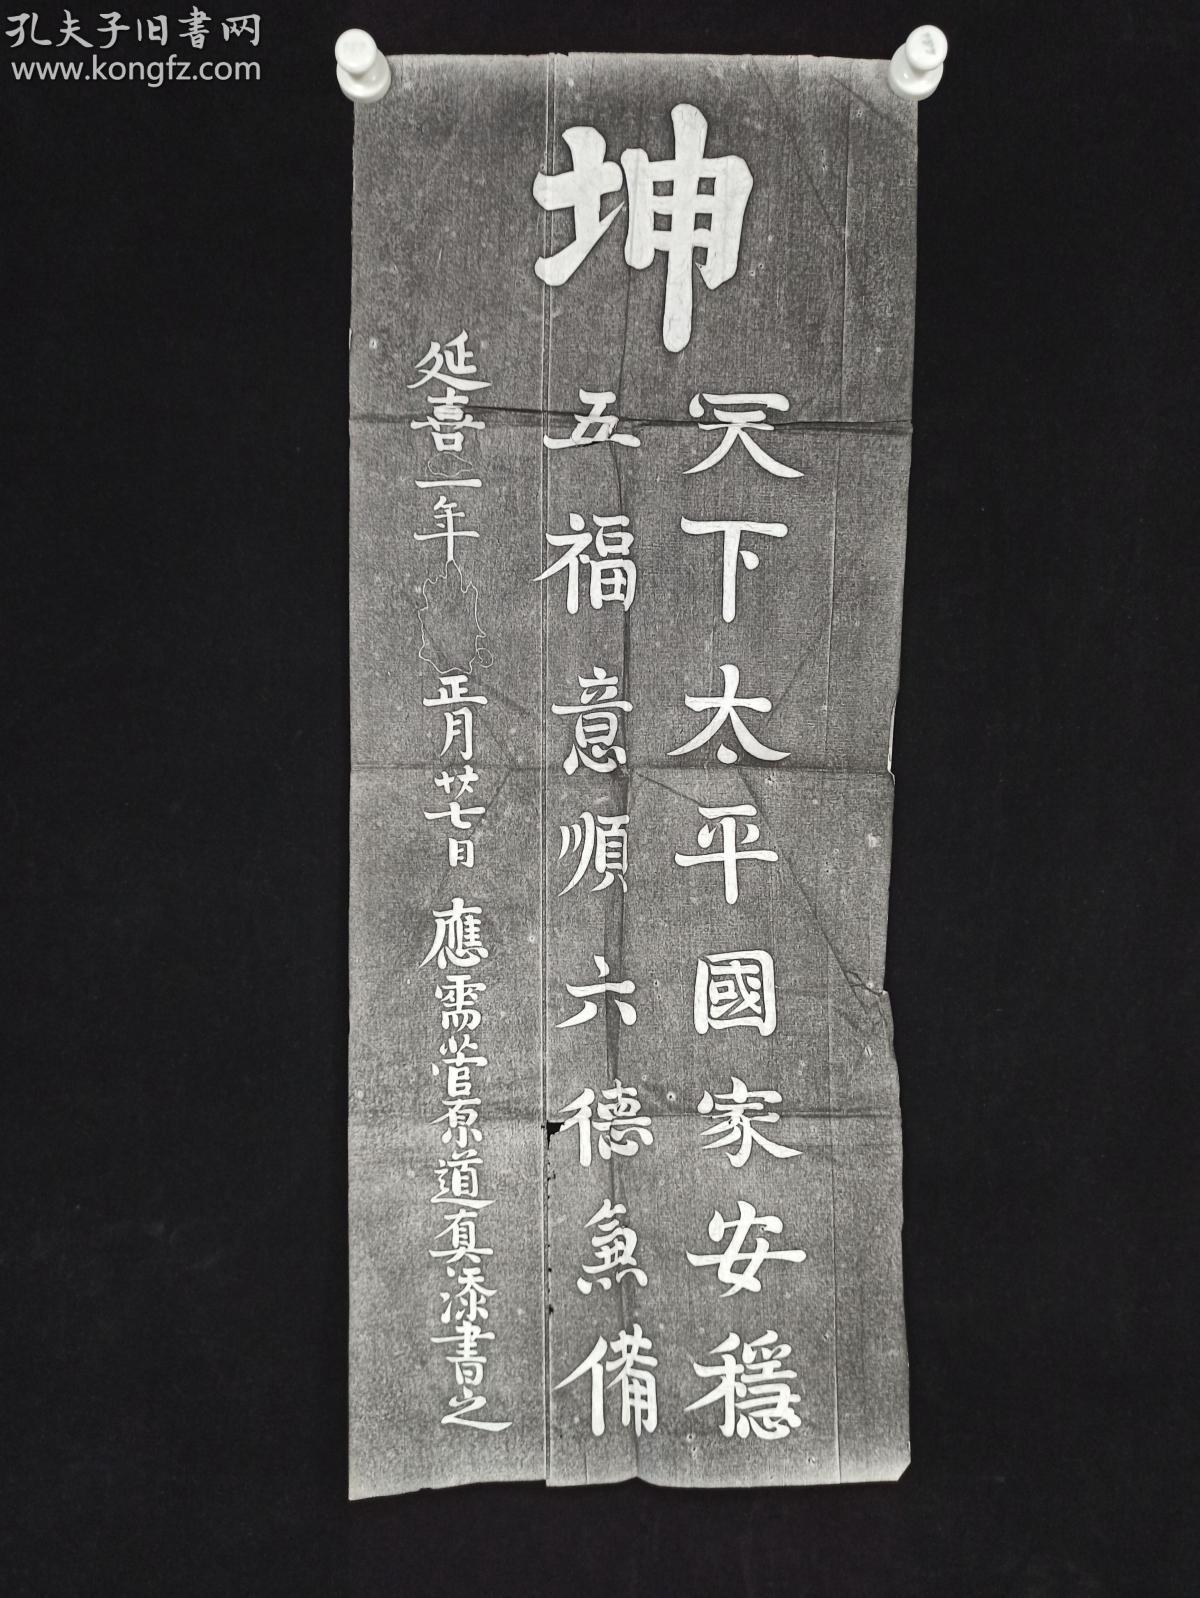 孔夫子旧書网
www.kongfz.com
坤
天下太平國家安穩
五福意順六德兼備
延喜二年 正月廿七日 應需菅原道真添書之